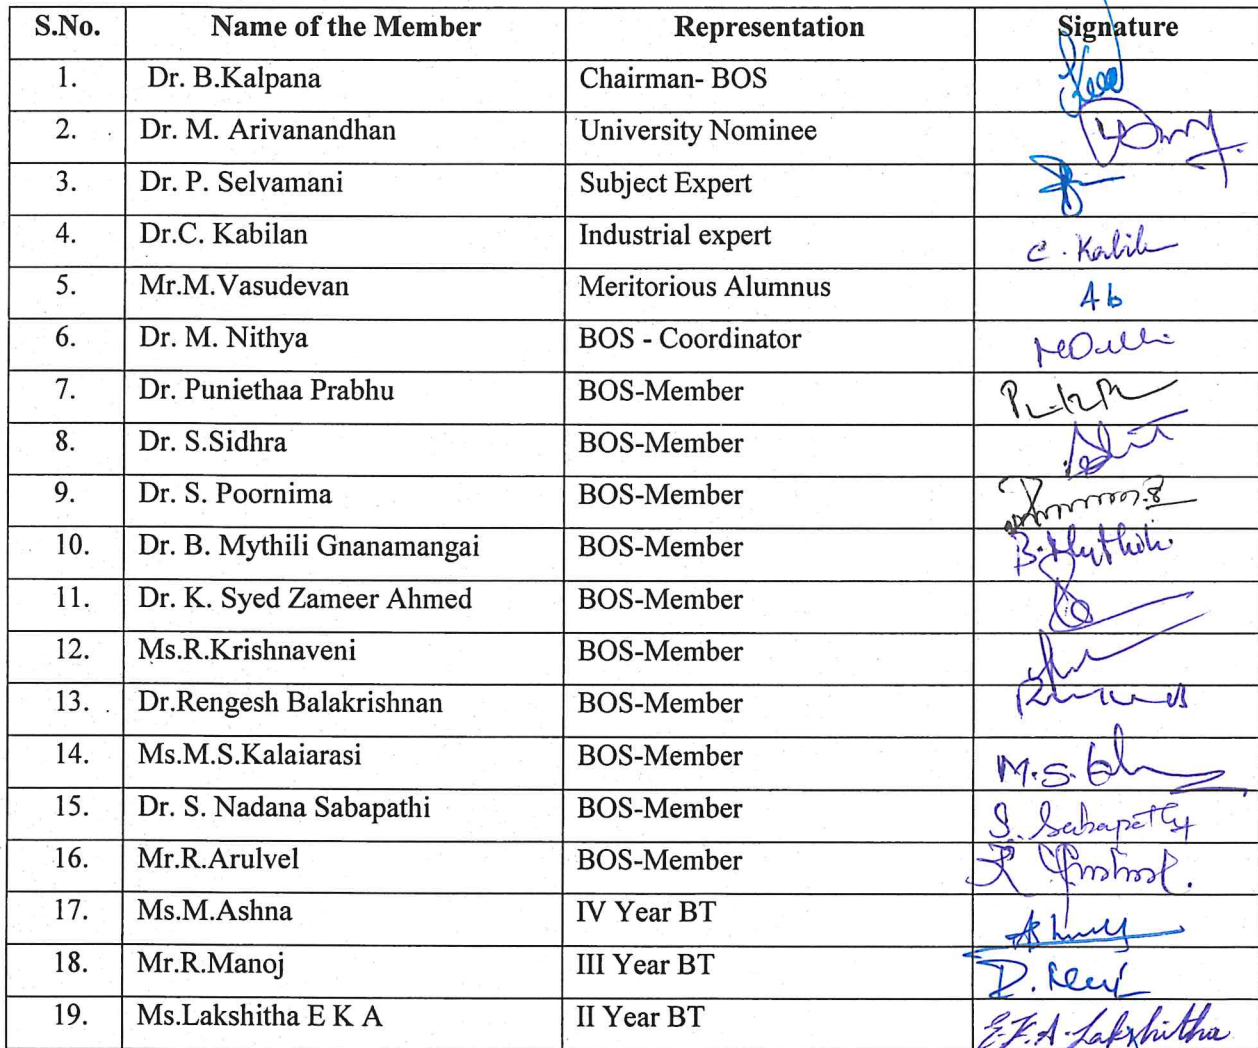 S.No. Name of the Member Representation Signature
1. Dr. B.Kalpana Chairman- BOS
2. Dr. M. Arivanandhan University Nominee
3. Dr. P. Selvamani Subject Expert
4. Dr.C. Kabilan Industrial expert C. Kabil
5. Mr.M.Vasudevan Meritorious Alumnus Ab
6. Dr. M. Nithya BOS - Coordinator
7. Dr. Puniethaa Prabhu BOS-Member
8. Dr. S.Sidhra BOS-Member
9. Dr. S. Poornima BOS-Member
10. Dr. B. Mythili Gnanamangai BOS-Member B. Mythili
11. Dr. K. Syed Zameer Ahmed BOS-Member
12. Ms.R.Krishnaveni BOS-Member
13. Dr.Rengesh Balakrishnan BOS-Member
14. Ms.M.S.Kalaiarasi BOS-Member M.S.
15. Dr. S. Nadana Sabapathi BOS-Member S. Sabapathy
16. Mr.R.Arulvel BOS-Member
17. Ms.M.Ashna IV Year BT
18. Mr.R.Manoj III Year BT
19. Ms.Lakshitha E K A II Year BT E.K.A. Lakshitha